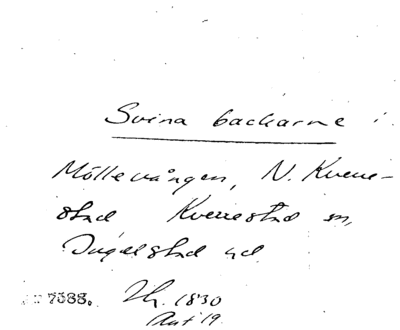 Svina backarne i
Möllevången, N. Kverre-
stad Kverrestad sn,
Ingelstad hd
7588. 1830
Ant 19